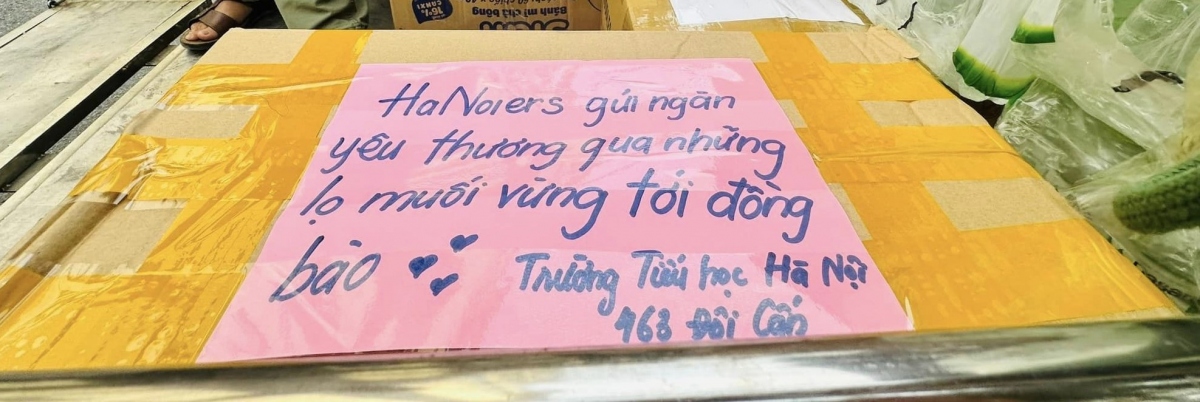 Bánh mì chà bông
HaNoiers gửi ngàn
yêu thương qua những
lọ muối vừng tới đồng
bào
Trường Tiểu học Hà Nội
463 Đội Cấn